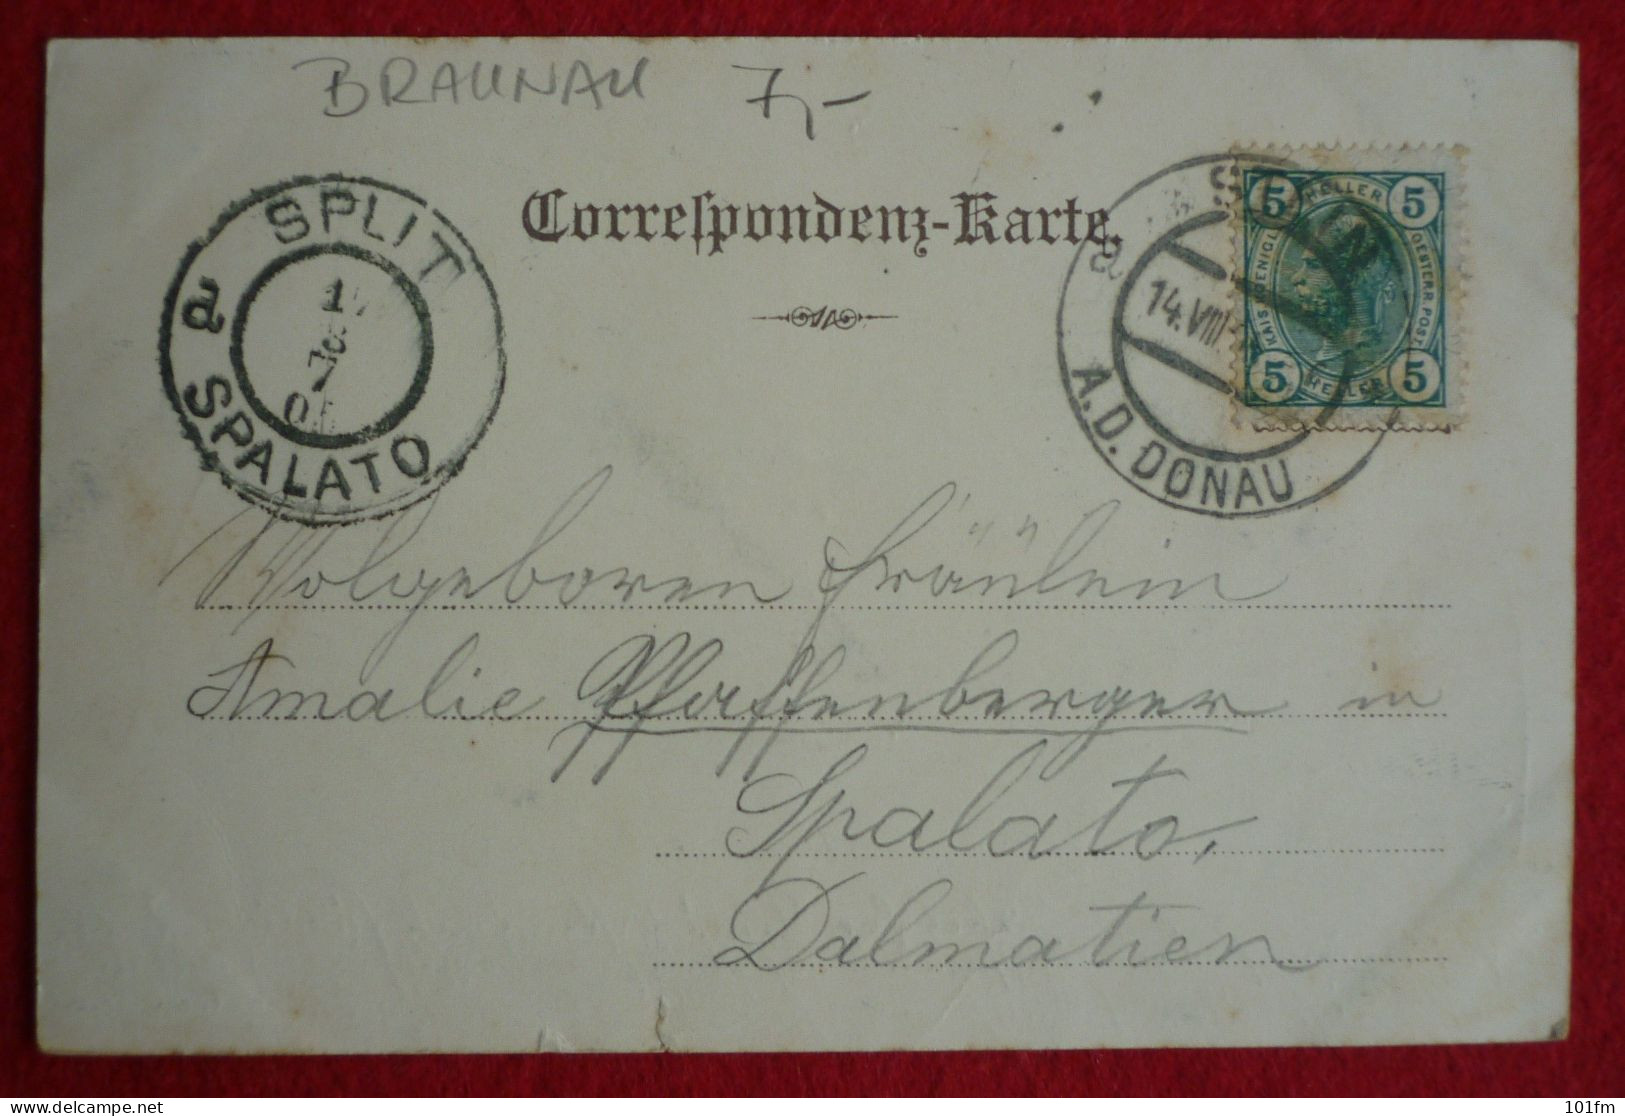 BRAUNAU 7,-
Correspondenz-Karte.
SPLIT
a
SPALATO
14.VIII
A.D. DONAU
a
5 HELLER 5
KAIS. KOENIGL. OESTERR. POST
5 HELLER 5
Wolgeboren Fräulein
Amalie Pfaffenberger in
Spalato,
Dalmatien
101fm